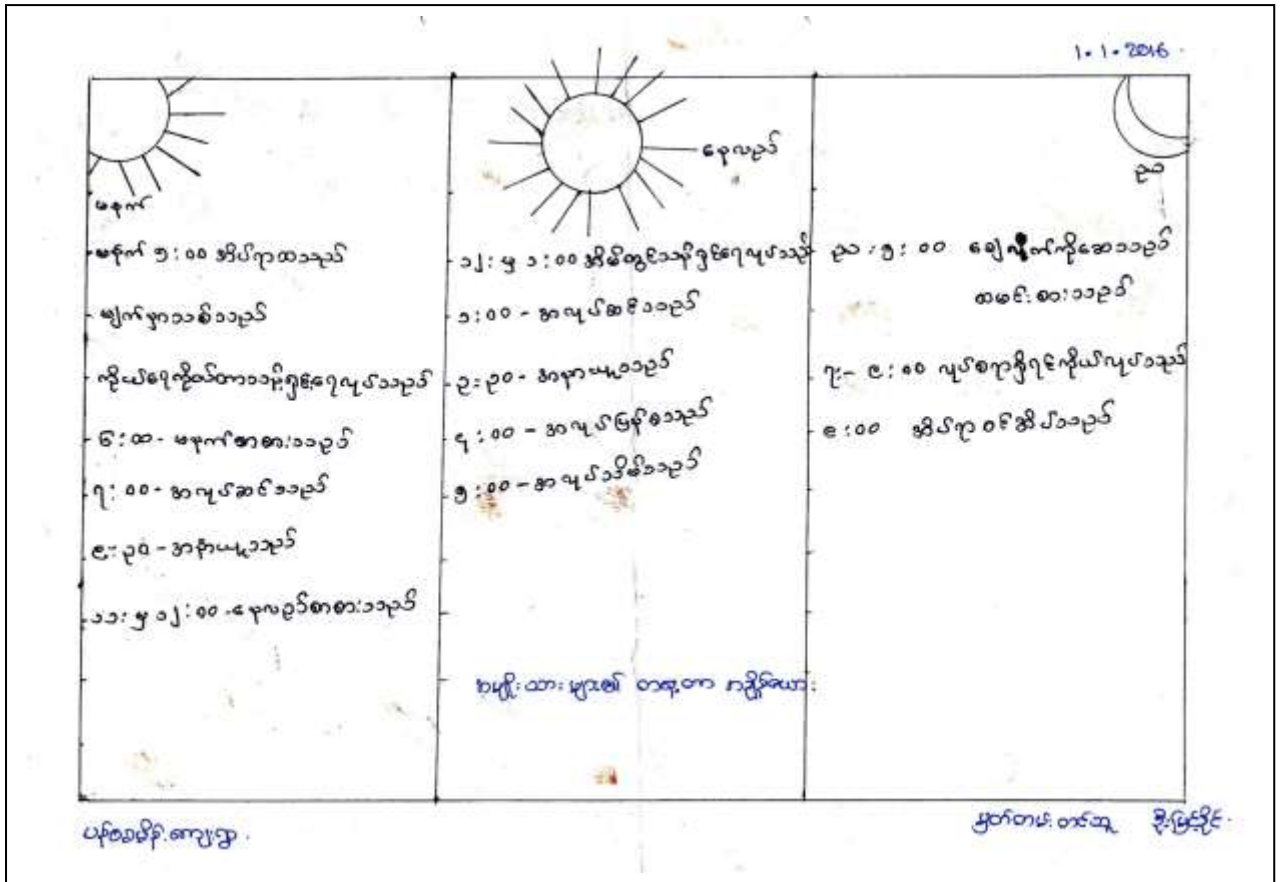 1.1.2016.
နေ့လည်
ည
မနက်
မနက် ၅:၀၀ အိပ်ရာထသည်
မျက်နှာသစ်သည်
ကိုယ်ရေကိုယ်တာသန့်ရှင်းရေလုပ်သည်
၆:၀၀- မနက်စာစားသည်
၇:၀၀- အလုပ်ဆင်းသည်
၉:၃၀-အနားယူသည်
၁၁:မှ ၁၂:၀၀-နေ့လည်စာစားသည်
၁၂:မှ ၁:၀၀ အိမ်တွင်သန့်ရှင်ရေလုပ်သည်
၁:၀၀-အလုပ်ဆင်းသည်
၃:၃၀-အနားယူသည်
၄:၀၀-အလုပ်ပြန်စသည်
၅:၀၀-အလုပ်သိမ်းသည်
ည:၅:၀၀ ရေချိုး
ထမင်းစားသည်
၇:-၉:၀၀ လုပ်စရာရှိရင်ကိုယ်လုပ်သည်
၉:၀၀ အိပ်ရာဝင်အိပ်သည်
အမျိုးသားများ၏ တစ်နေ့တာ
ကျေးရွာ.
မှတ်တမ်းတင်သူ ဦးမြင့်ခိုင်.